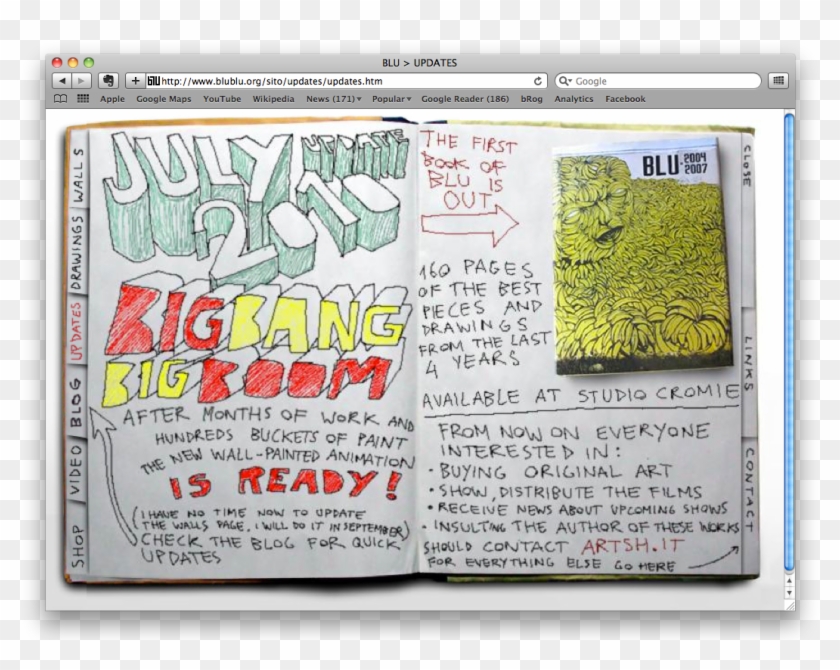 BLU > UPDATES
http://www.blublu.org/sito/updates/updates.htm
Google
Apple Google Maps YouTube Wikipedia News (171) Popular Google Reader (186) bRog Analytics Facebook
WALLS
DRAWINGS
UPDATES
BLOG
VIDEO
SHOP
JULY UPDATE
2010
BIG BANG
BIG BOOM
AFTER MONTHS OF WORK AND
HUNDREDS BUCKETS OF PAINT
THE NEW WALL-PAINTED ANIMATION
IS READY!
(I HAVE NO TIME NOW TO UPDATE
THE WALLS PAGE, I WILL DO IT IN SEPTEMBER)
CHECK THE BLOG FOR QUICK
UPDATES
THE FIRST
BOOK OF
BLU IS
OUT
BLU 2004
2007
160 PAGES
OF THE BEST
PIECES AND
DRAWINGS
FROM THE LAST
4 YEARS
AVAILABLE AT STUDIO CROMIE
FROM NOW ON EVERYONE
INTERESTED IN:
• BUYING ORIGINAL ART
• SHOW, DISTRIBUTE THE FILMS
• RECEIVE NEWS ABOUT UPCOMING SHOWS
• INSULTING THE AUTHOR OF THESE WORKS
SHOULD CONTACT ARTSH.IT
FOR EVERYTHING ELSE GO HERE
CLOSE
LINKS
CONTACT